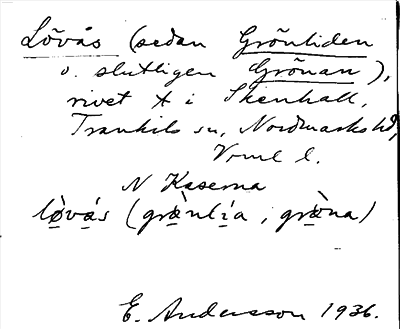 Lövås (sedan Grönliden
o. slutligen Grönan),
rivet † i Skenhall,
Trankils sn, Nordmarks hd,
Vrml l.
N Kaserna
lø̀vás (grø̀nlía, grø̀na)
E. Andersson 1936.